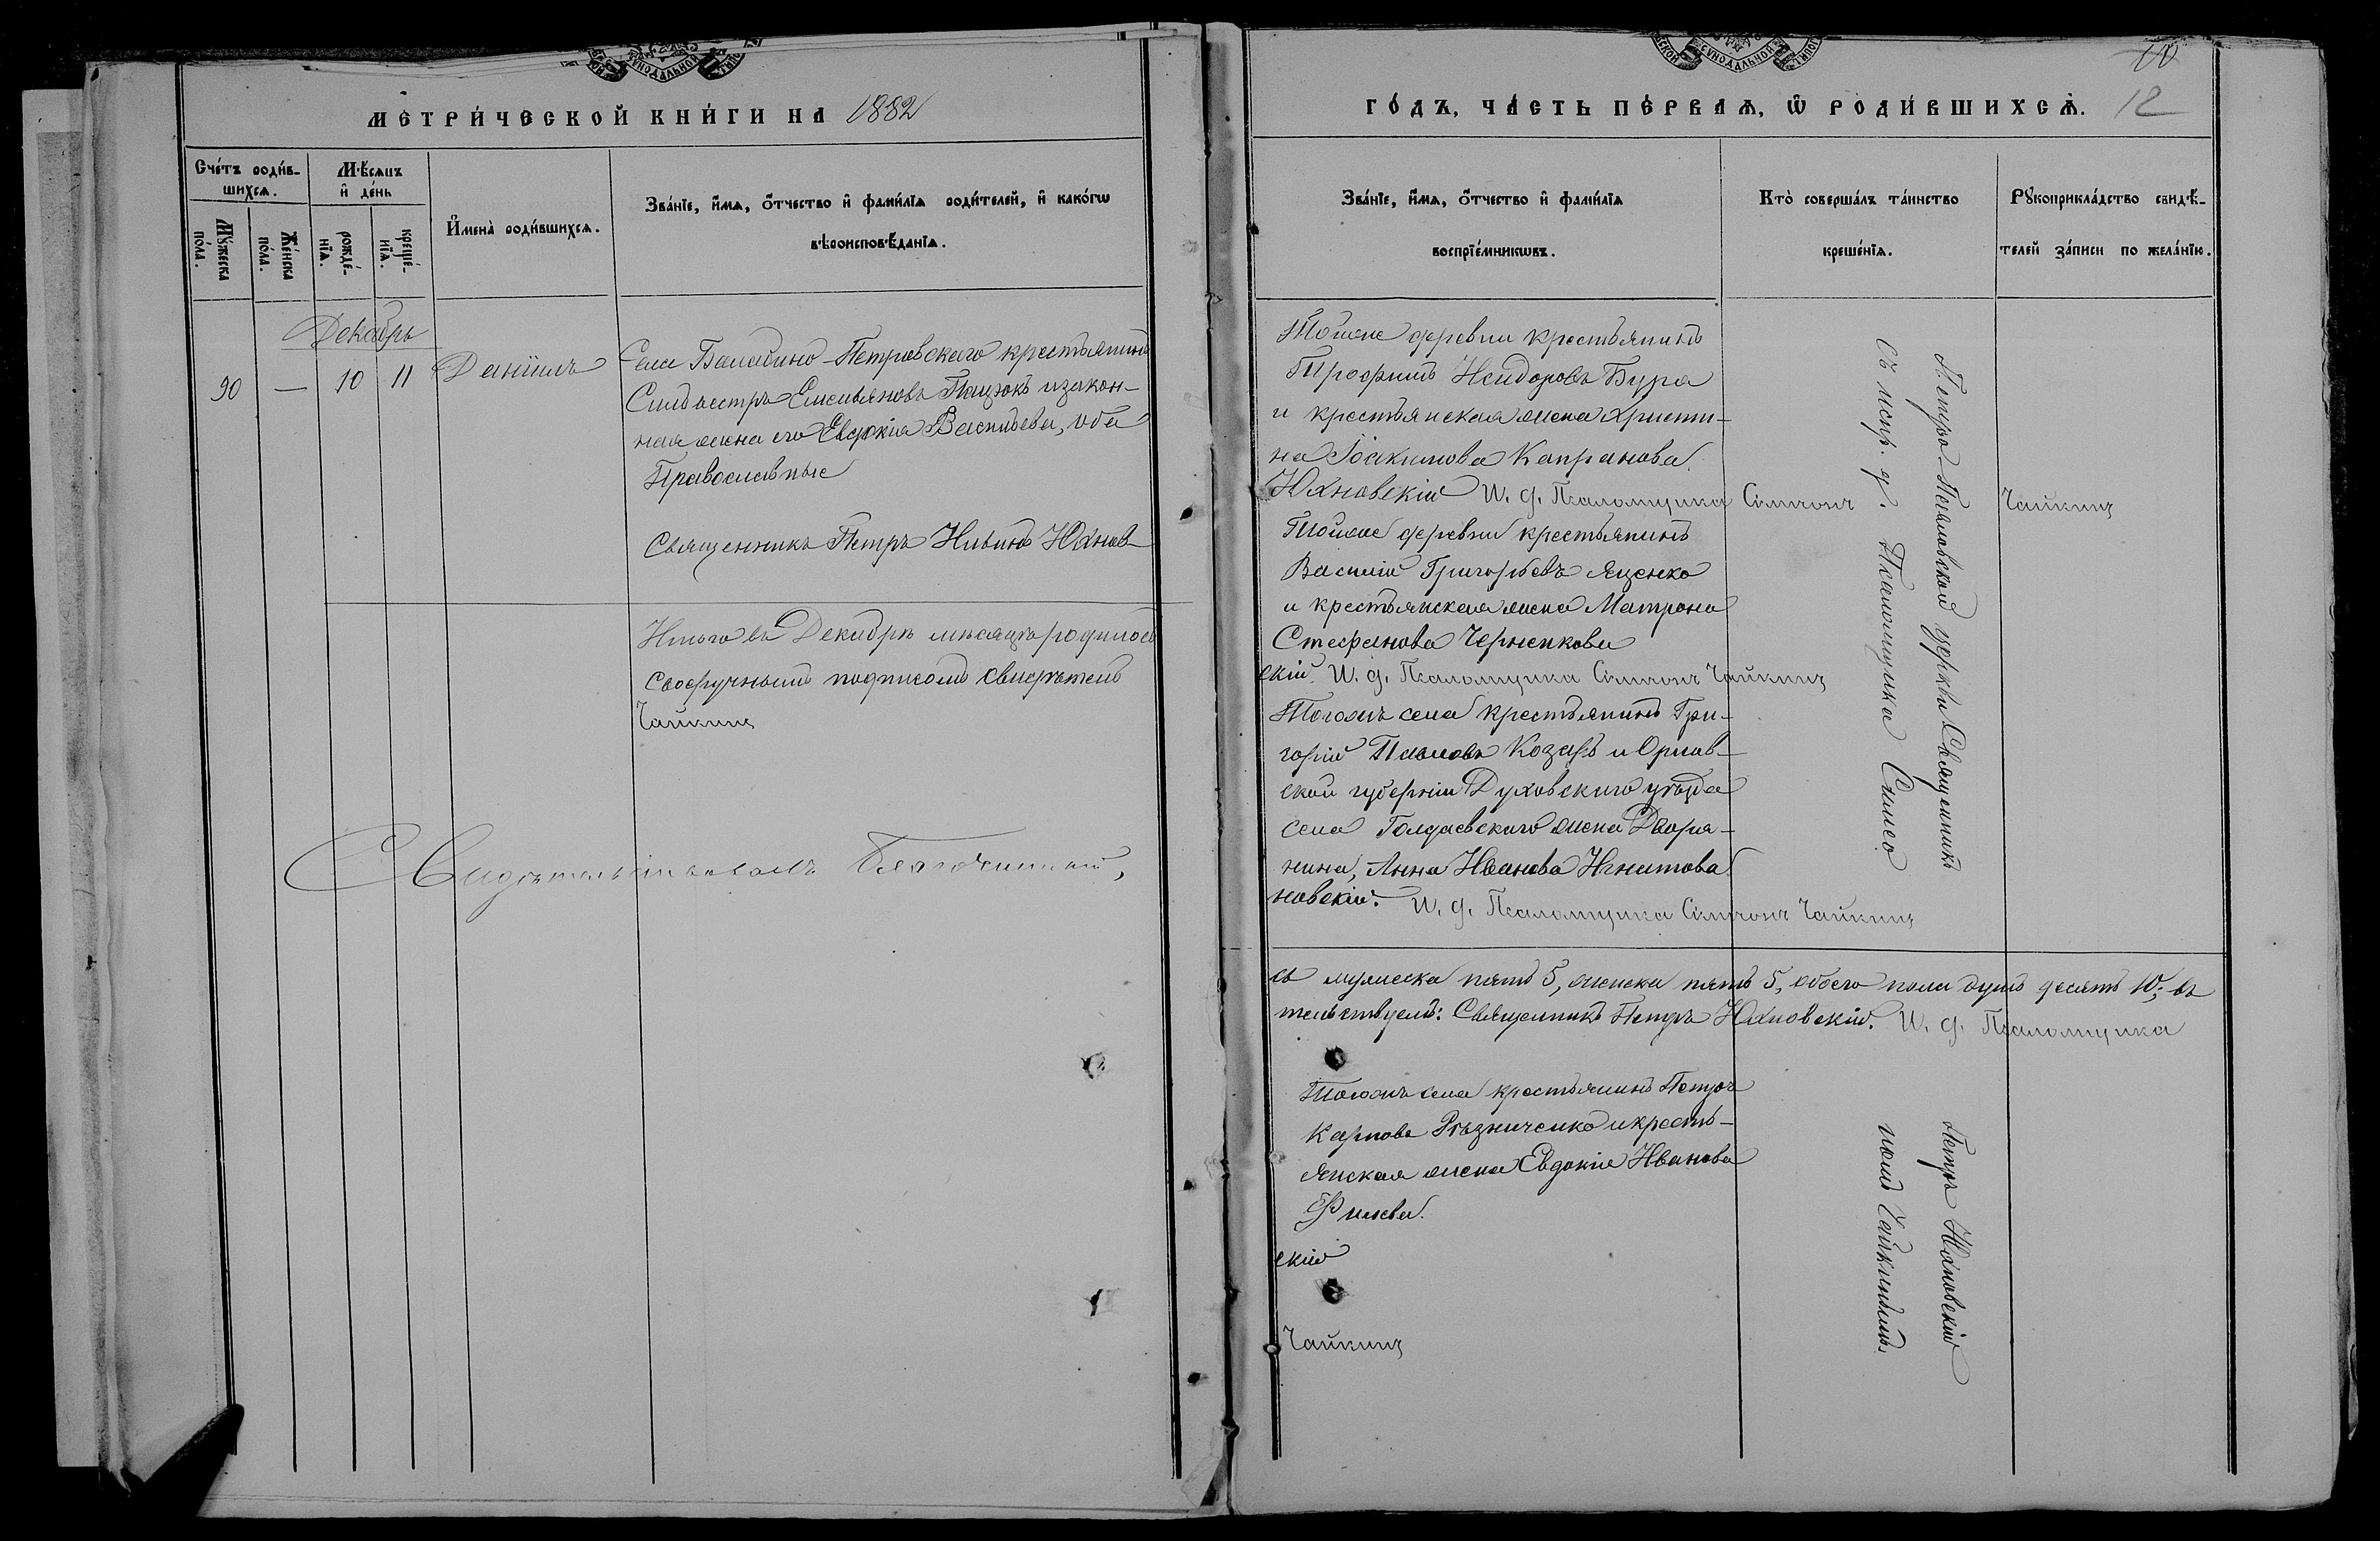 МЕТРИ́ЧЕСКОЙ КНИ́ГИ НА 1882
Сче́тъ роди́в-
шихсѧ.
Мꙋ́жеска
по́ла.
Же́нска
по́ла.
М҆ѣсѧцъ
и҆ де́нь
рожде́-
нїѧ.
креще́-
нїѧ.
И҆мена̀ роди́вшихсѧ.
Зва́нїе, и҆́мѧ, ѻ҆́тчество и҆ фами́лїѧ роди́телей, и҆ како́гѡ
вѣроисповѣ́данїѧ.
Декабрь
90 — 10 11 Данiилъ
Села Балабино-Петровскаго крестьянинъ
Сильвестръ Емельяновъ Пацюкъ и закон-
ная жена его Евдокiя Васильева, оба
Православные
Священникъ Петръ Юхнов-
Итого въ Декабрѣ мѣсяцѣ родилось
своеручнымъ подписомъ свидѣтель
Чайкинъ
Свидѣтельствовалъ Благочинный,
ГО́ДЪ, ЧА́СТЬ ПЕ́РВАѦ, Ѡ҆ РОДИ́ВШИХСѦ. 12
10
Зва́нїе, и҆́мѧ, ѻ҆́тчество и҆ фами́лїѧ
воспрїе́мникѡвъ.
Кто̀ соверша́лъ та́инство
креще́нїѧ.
Рꙋкоприкла́дство свидѣ́-
телей за́писи по жела́нїю.
Тойже деревни крестьянинъ
Трофимъ Исидоровъ Бура
и крестьянская жена Христи-
на Iоакимова Капранова.
Юхновскiй И. д. Псаломщика Симеонъ Чайкинъ
Тойже деревни крестьянинъ
Василiй Григорьевъ Яценко
и крестьянская жена Матрона
Стефанова Черненкова
скiй. И. д. Псаломщика Симеонъ Чайкинъ
Тогожъ села крестьянинъ Гри-
горiй Павловъ Козарь и Орлов-
ской губернiи уѣзда
села жена Дворя-
нина, Анна Иванова Игнатова.
новскiй. И. д. Псаломщика Симеонъ Чайкинъ
Петро-Павловской церкви Священникъ
съ испр. д. Псаломщика Симео
сь мужеска пять 5, женска пять 5, обоего пола душъ десять 10; въ
тельствуемъ: Священникъ Петръ Юхновскiй. И. д. Псаломщика
Тогожъ села крестьянинъ Петръ
Карповъ Рѣзниченко и кресть-
янская жена Евдокiя Иванова
скiй
Чайкинъ
Петръ Юхновскiй
номъ Чайкинымъ.